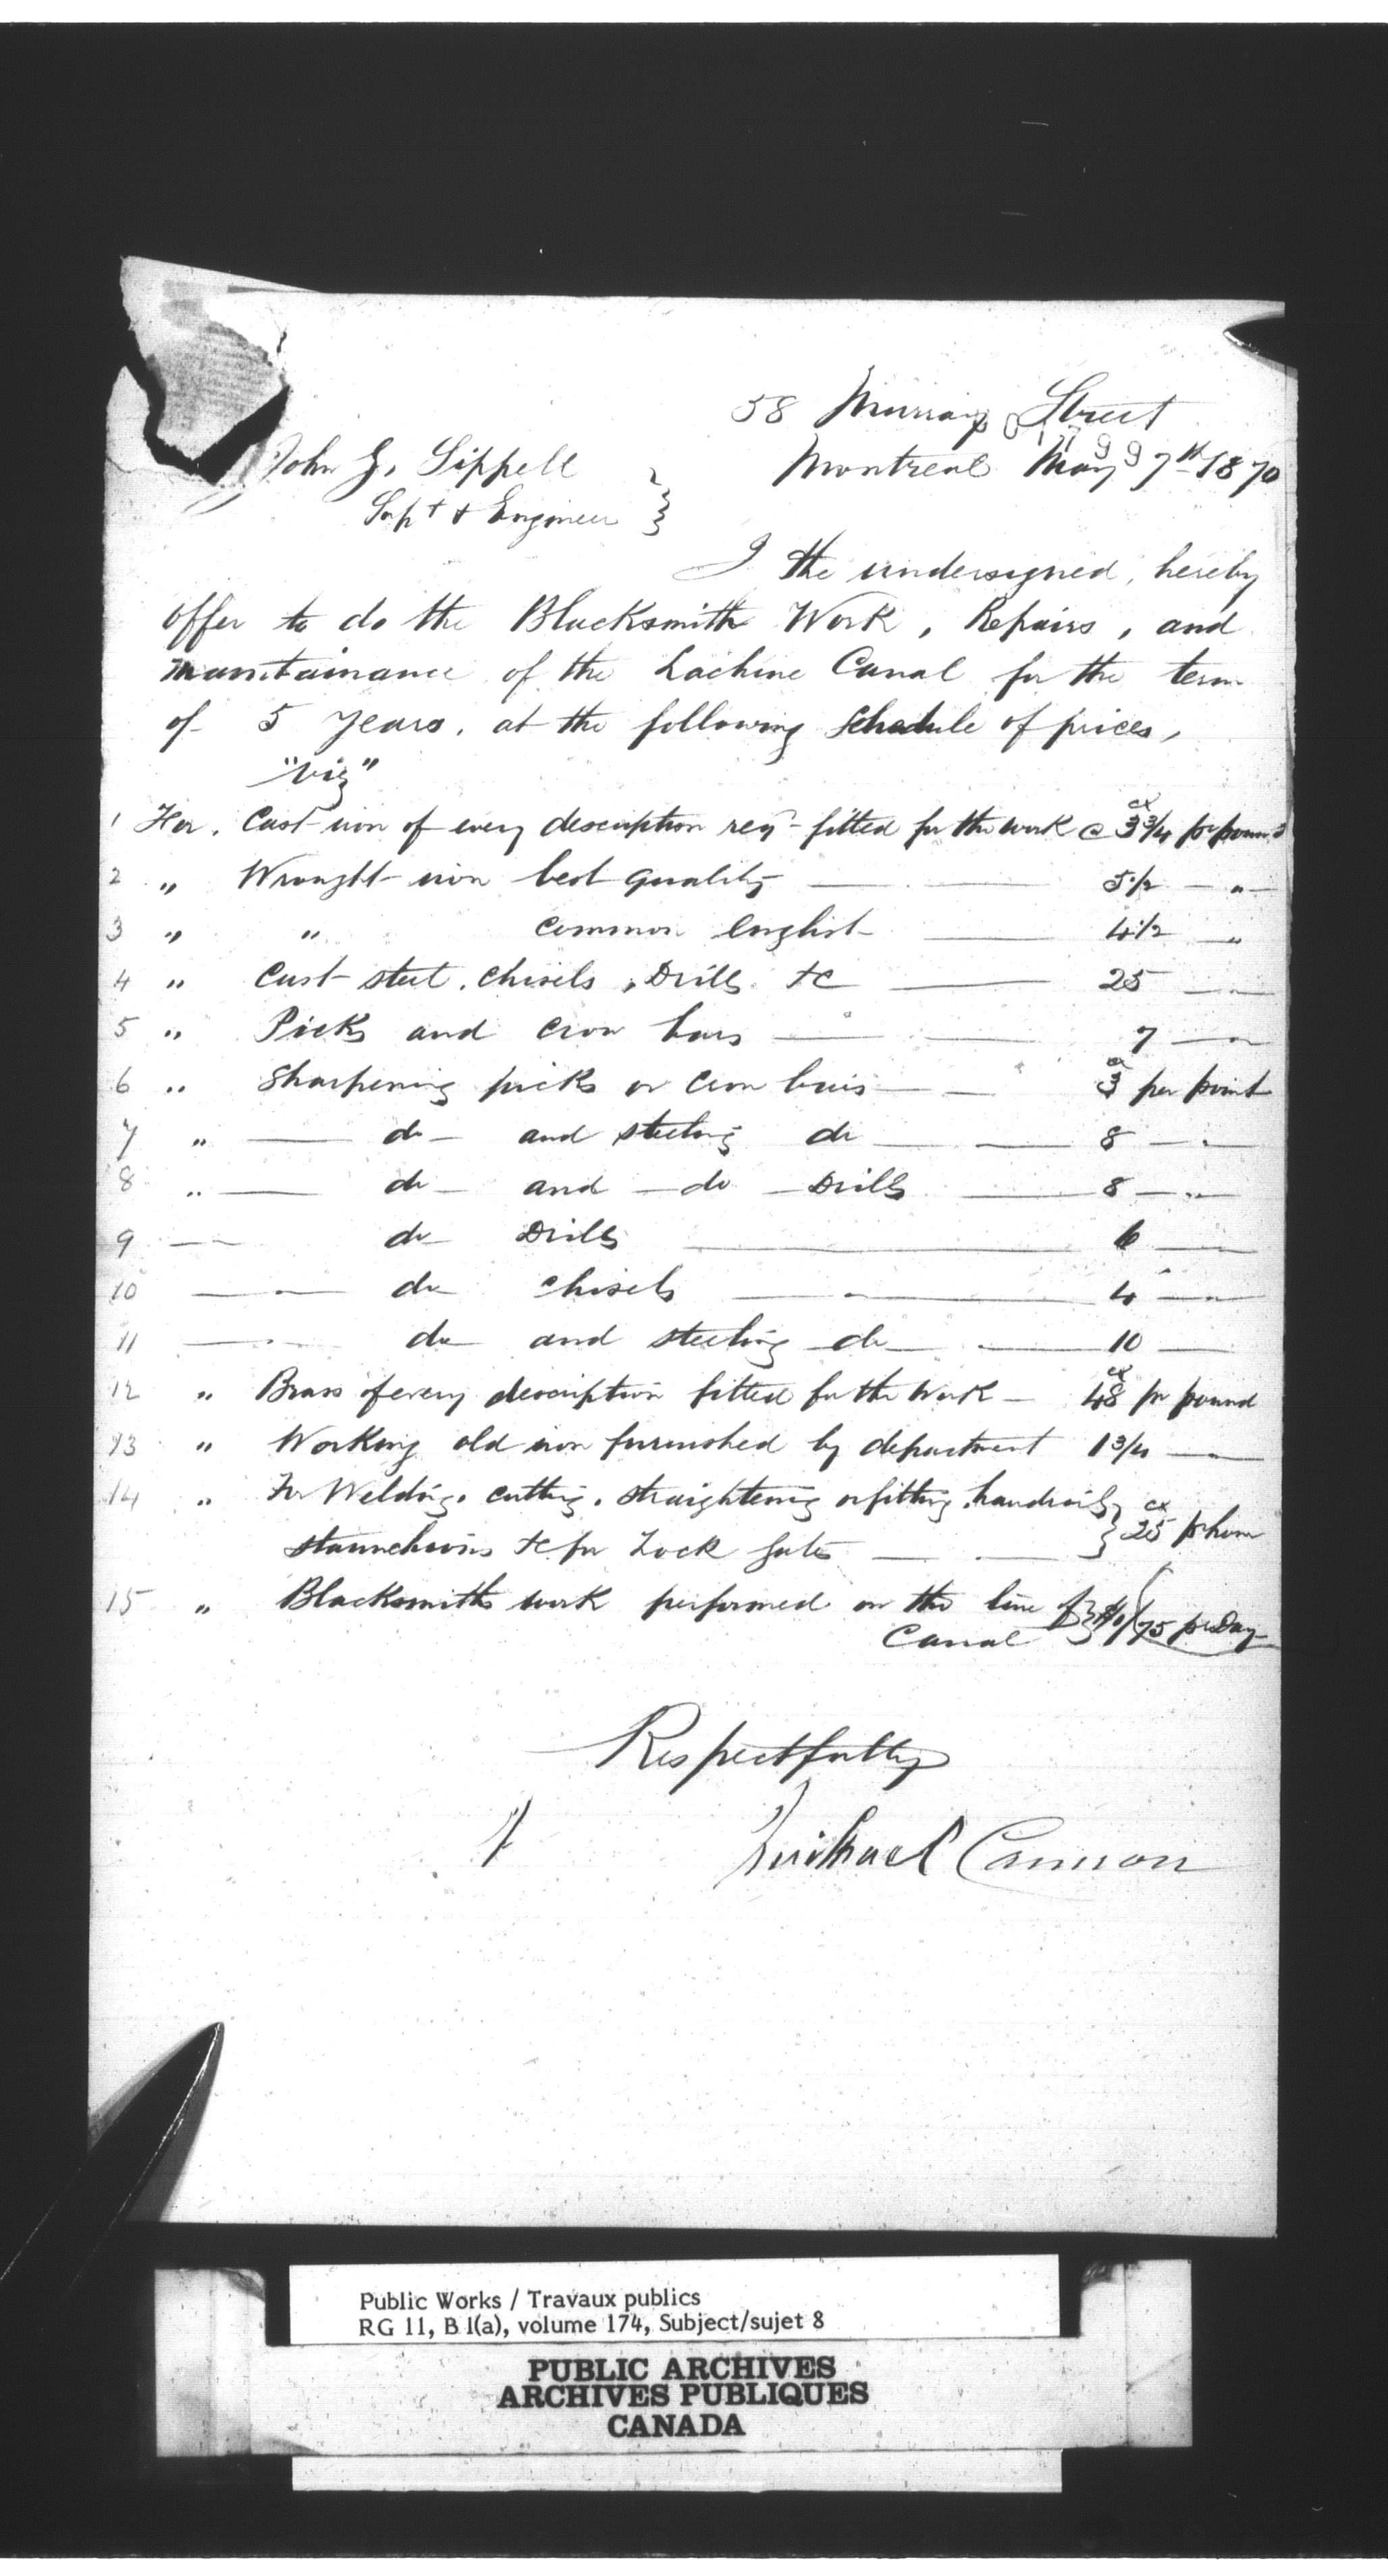 58 Murray Street
01799
Montreal May 7th 1870
John G. Sippell
Supt & Engineer
I the undersigned, hereby
offer to do the Blacksmith Work, Repairs, and
maintainance of the Lachine Canal for the term
of 5 years, at the following Schedule of prices,
"viz"
1 For. Cast iron of every description reqd fitted for the work @ 3 3/4 cts pr pound
2 „ Wrought iron best quality — 5 1/2 — „ —
3 „ „ common english — 4 1/2 — „
4 „ Cast steel, chisels, Drills &c — 25 — „ —
5 „ Picks and crow bars — 7 — „
6 „ Sharpening picks or crow bars — 3 cts per point
7 „ — do — and steeling do — 8 — „ —
8 „ — do — and — do — Drills — 8 — „ —
9 — „ — do — Drills — 6 —
10 — „ — do chisels — „ — 4 — „ —
11 — „ — do — and steeling do — 10 —
12 „ Brass of every description fitted for the work — 48 cts pr pound
13 „ Working old iron furnished by department 1 3/4 —
14 „ For Welding, cutting, straightening or fitting handrails,
staunchions &c for Lock gates — } 25 cts pr hour
15 „ Blacksmiths work performed on the line of
Canal } $1/75 pr Day
Respectfully
Michael Cannon
Public Works / Travaux publics
RG 11, B 1(a), volume 174, Subject/sujet 8
PUBLIC ARCHIVES
ARCHIVES PUBLIQUES
CANADA